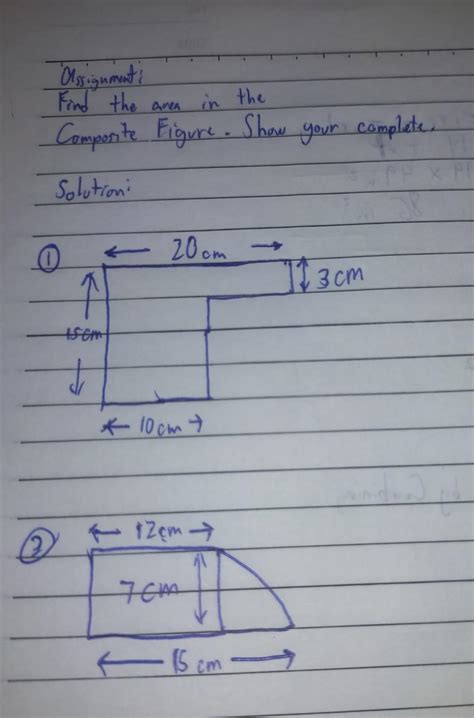 Assignment:
Find the area in the
Composite Figure. Show your complete.
Solution:
1
20cm
3cm
15cm
10cm
2
12cm
7cm
15cm